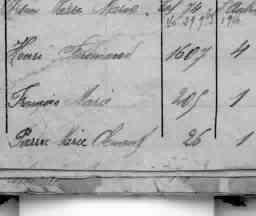 Marie
Henri Ferdinand 1607 4
François Marie 205 1
Pierre Marie Clément 26 1